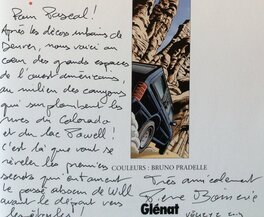 Pour Pascal!
Après les décors urbains de
Denver, nous voici au
cœur des grands espaces
de l'ouest américain,
au milieu des canyons
qui surplombent les
rives du Colorado
et du lac Powell!
C'est là que vont se
révéler les premiers
secrets qui entourent
le passé obscur de Will
avant le départ vers
les étoiles!
COULEURS : BRUNO PRADELLE
Très amicalement
Pierre
Glénat